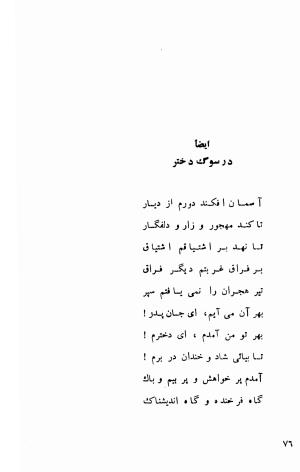 ایضاً
در سوگ دختر
آسمان افکند دورم از دیار
تا کند مهجور و زار و دلفگار
تا نهد بر اشتیاقم اشتیاق
بر فراق غربتم دیگر فراق
تیر هجران را نمی یافتم سپر
بهر آن می آیم، ای جان پدر!
بهر تو من آمدم، ای دخترم!
تا بیائی شاد و خندان در برم!
آمدم پر خواهش و پر بیم و باک
گاه فرخنده و گاه اندیشناک
۷۶